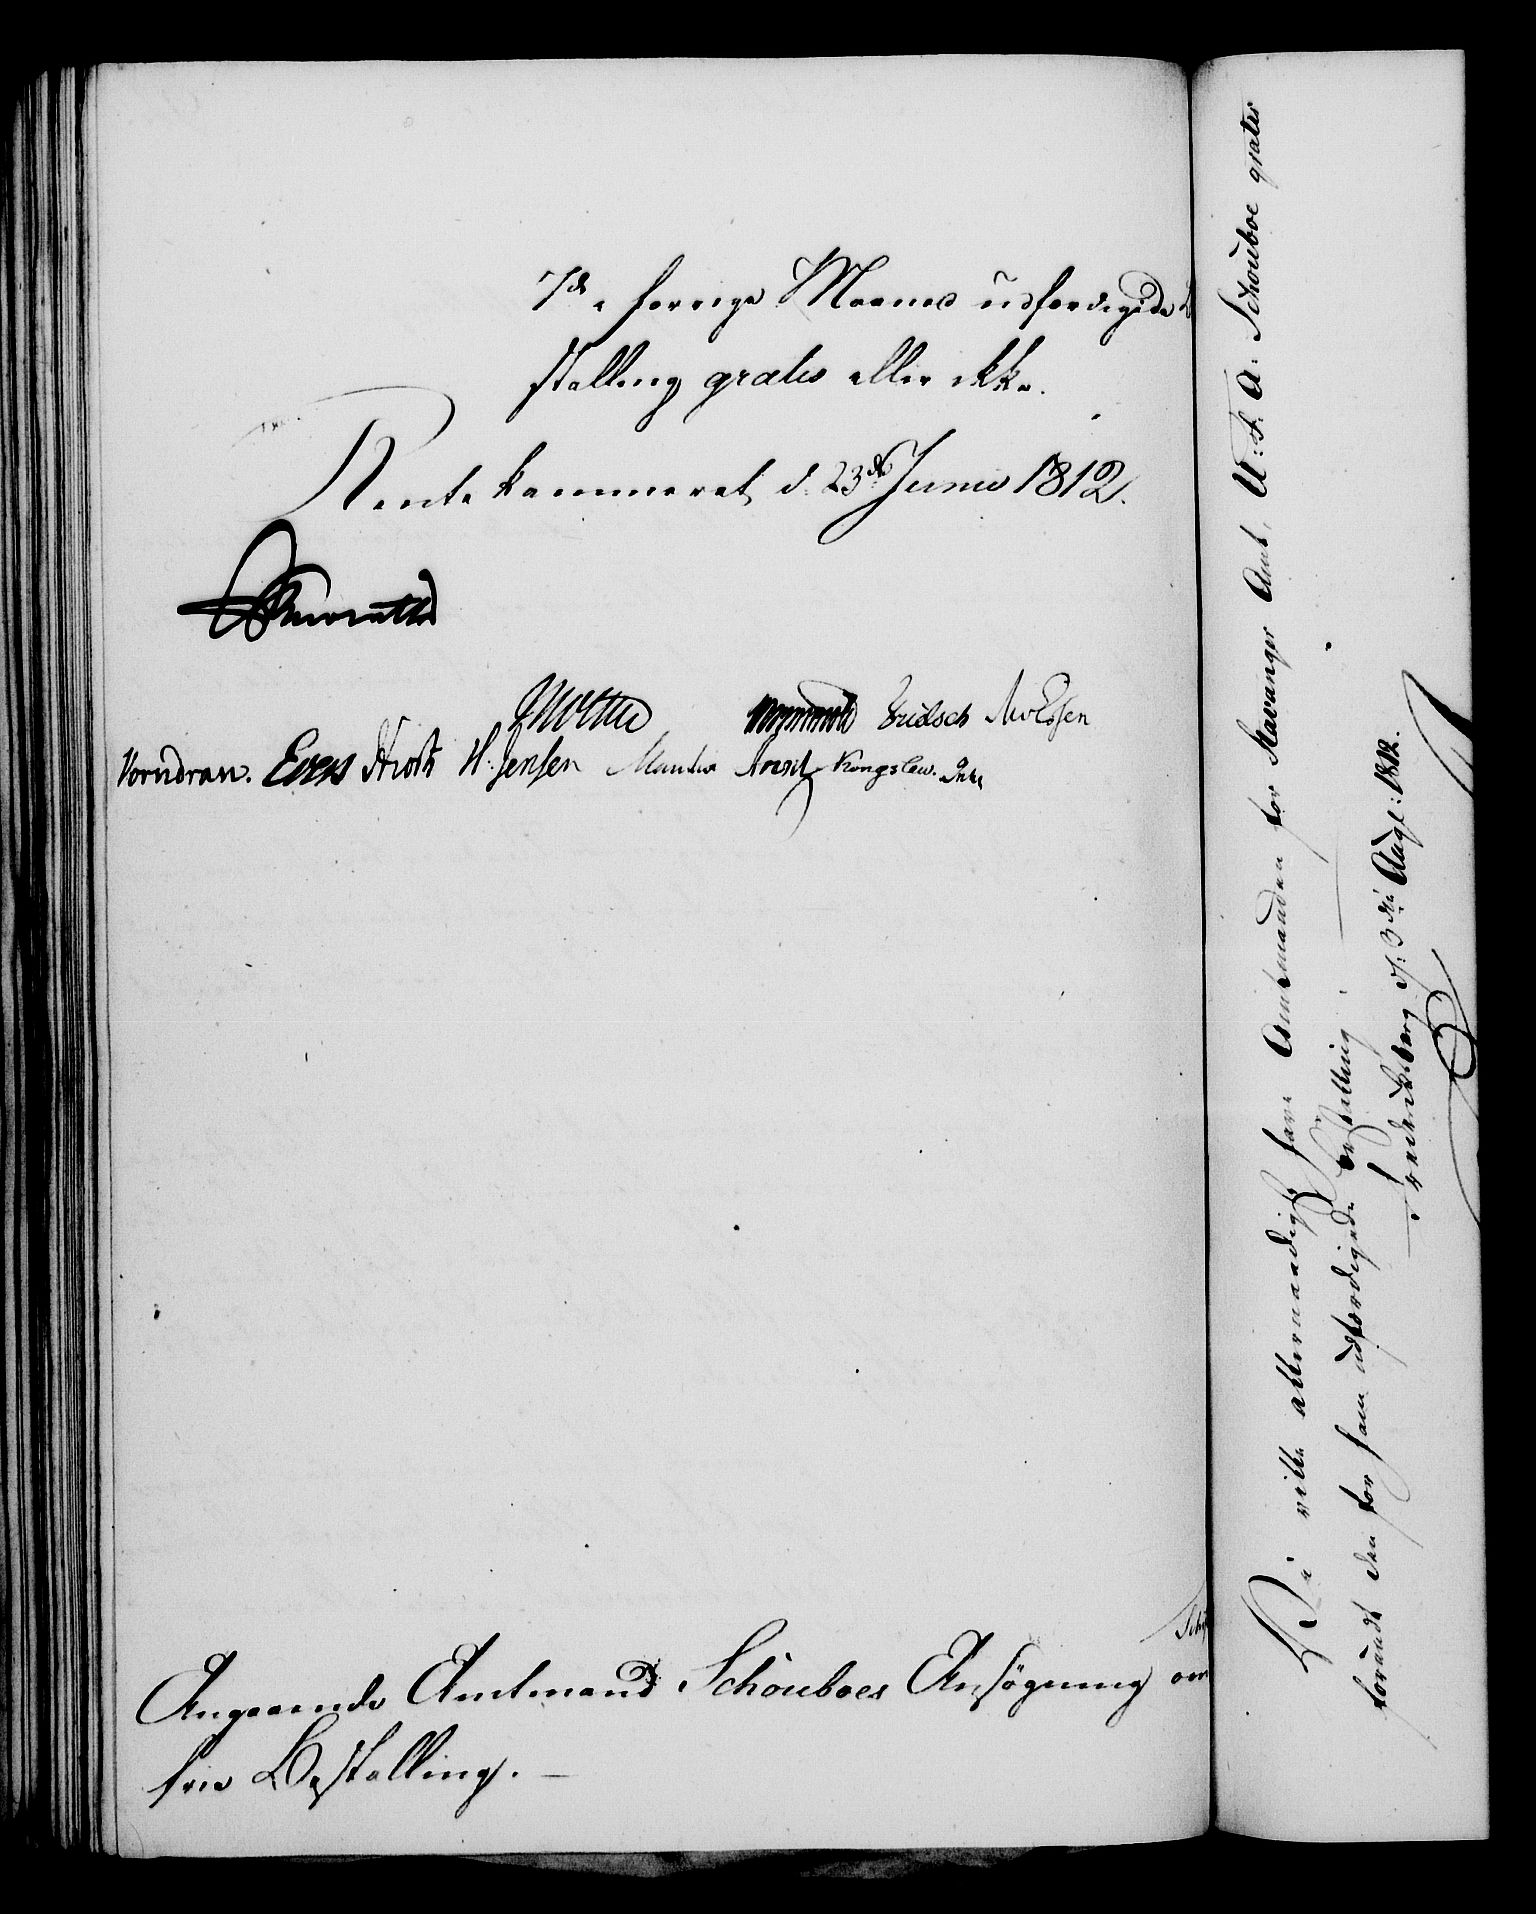 7de forrige Maaned udfærdigede Be
stalling gratis eller ikke.
Rentekammeret d: 23de Junii 1812.
Knuth
Wormskiold Fridsch Mo
Vorndran. Evers H: Jensen Munter Arendt Kongslew.
Angaaende Amtmand Schouboes Ansøgning om
frie Bestalling. —
Vi ville allernaadigst have Amtmanden for Stavanger Amt, U: F: A: Schouboe gratis
forundt den for ham udfærdigede Bestalling.
Frederiksberg d: 3die Aug: 1812.